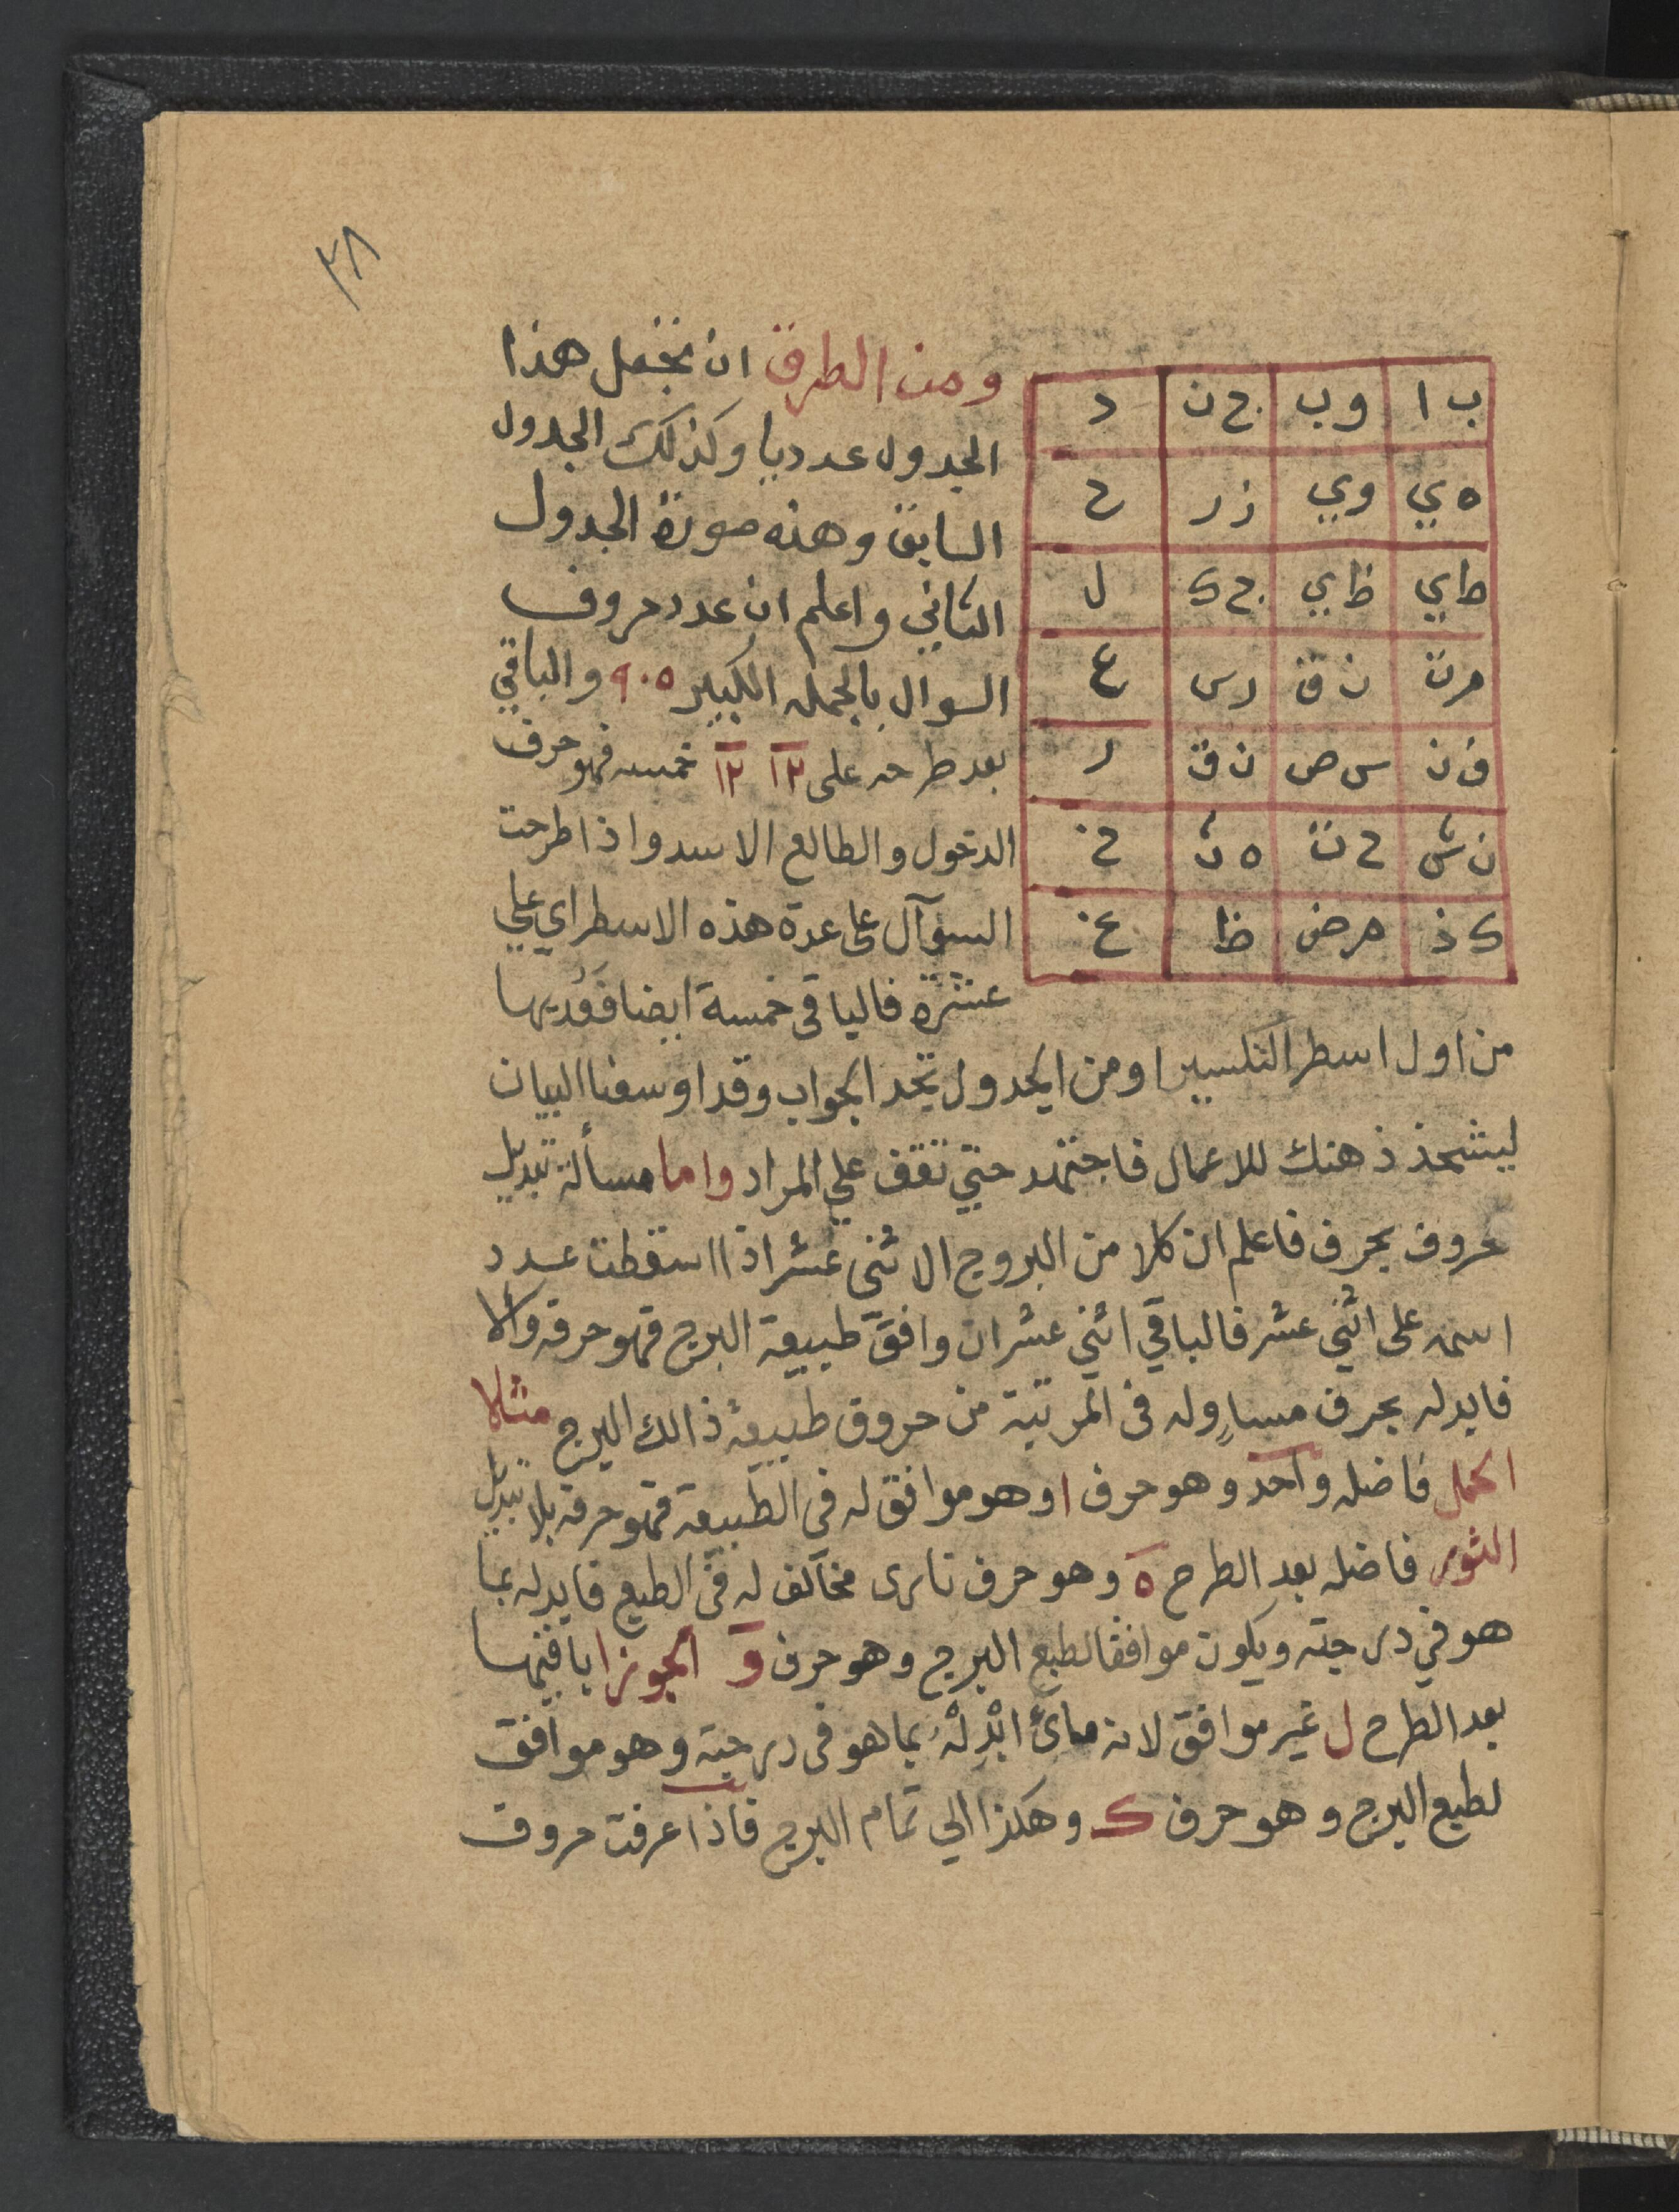 ٣٨
ب ا | و ب | ج ن | د
ه ي | و ي | ز ر | ح
ط ي | ظ ي | ج ك | ل
م ت | ن ق | ر س | ع
ف ن | س ص | ن ق | ر
ن ش | ح ت | ه ث | خ
ك ذ | م ض | ظ ا | غ
ومن الطرق ان تجعل هذا
الجدول عدديا وكذلك الجدول
السابق وهذه صورة الجدول
الثاني واعلم ان عدد حروف
السوال بالجمله الكبير ٩٠٥ والباقي
بعد طرحه على ١٢ ١٢ خمسه فهو حرف
الدخول والطالع الاسد واذا طرحت
السوآل على عدة هذه الاسطر اي علي
عشرة فالباقى خمسة ايضا فعُد بها
من اول اسطر التكسير او من الجدول تجد الجواب وقد اوسعنا البيان
ليشحذ ذهنك للاعمال فاجتهد حتي تقف علي المراد واما مسألة تبديل
حروف بحرف فاعلم ان كلا من البروج الاثنى عشر اذا اسقطت عدد
اسمه على اثني عشر فالباقي اثني عشر ان وافق طبيعة البرج فهو حرفه والا
فابدله بحرف مساوٍ له فى المرتبة من حروف طبيعة ذالك البرج مثلا
الحمل فاضله واحد وهو حرف ا وهو موافق له فى الطبيعة فهو حرفه بلا تبديل
الثور فاضله بعد الطرح ه وهو حرف نارى مخالف له فى الطبع فابدله بما
هو في درجته ويكون موافقا لطبع البرج وهو حرف و الجوزا باقيها
بعد الطرح ل غير موافق لانه مائ ابْدِلْهُ بما هو فى درجته وهو موافق
لطبع البرج وهو حرف ك وهكذا الي تمام البرج فاذا عرفت حروف